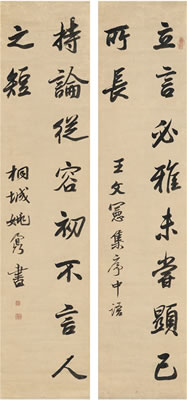 立言必雅未嘗顯己
所長
王文憲集序中語
持論從容初不言人
之短
桐城姚鼐書